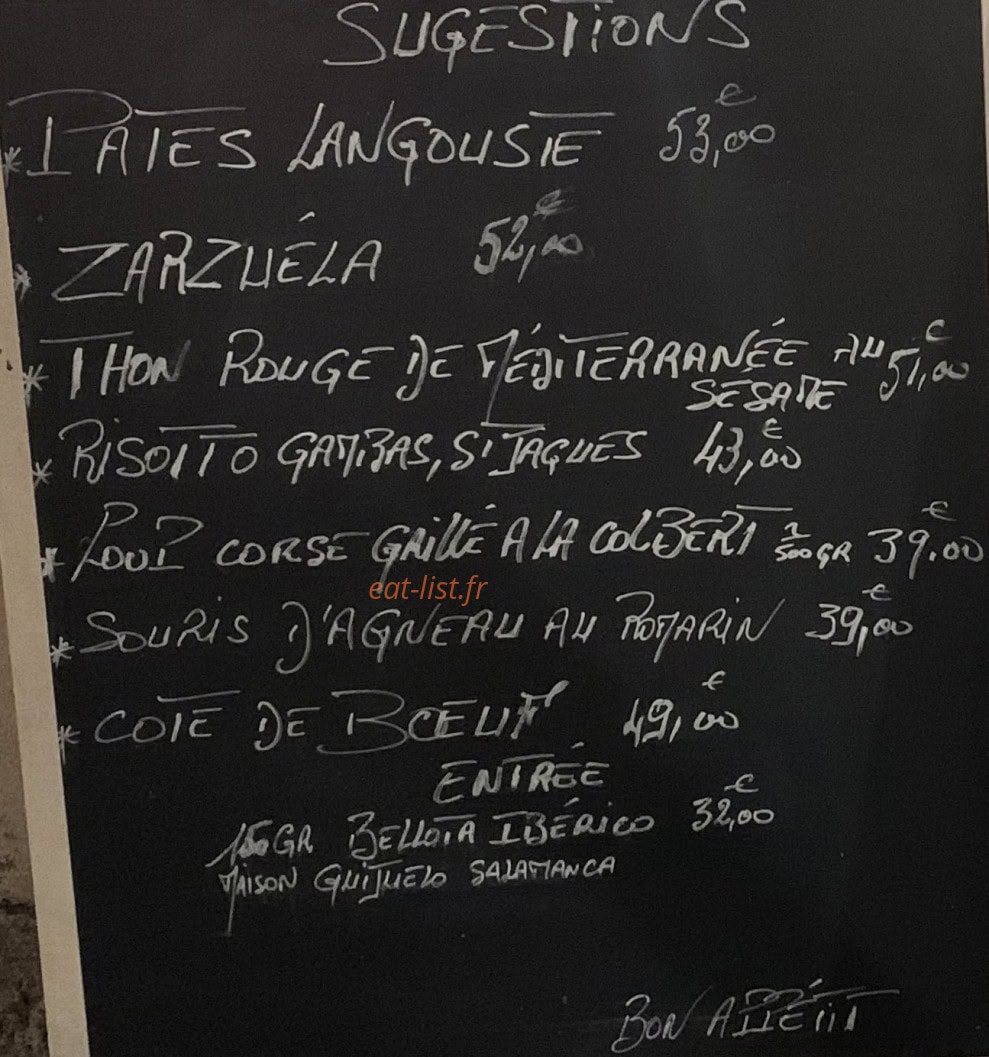 SUGESTIONS
* PATES LANGOUSTE 53,00 €
* ZARZUÉLA 52,00 €
* THON ROUGE DE MÉDITERRANÉE AU 51,00 €
SESAME
* RISOTTO GAMBAS, ST JAQUES 43,00 €
* LOUP CORSE GRILLÉ A LA COLBERT 500GR 39,00 €
eat-list.fr
* SOURIS D'AGNEAU AU ROMARIN 39,00 €
* COTE DE BŒUF 49,00 €
ENTRÉE
150GR BELLOTA IBÉRICO 32,00 €
MAISON GUIJUELO SALAMANCA
BON APPÉTIT